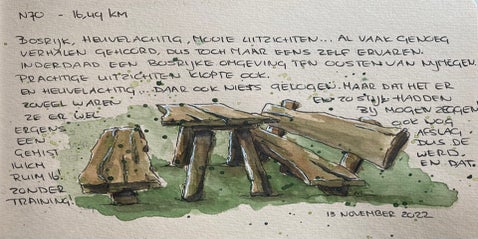 N70 - 16,49 KM
BOSRIJK, HEUVELACHTIG, MOOIE UITZICHTEN... AL VAAK GENOEG
VERHALEN GEHOORD, DUS TOCH MAAR EENS ZELF ERVAREN.
INDERDAAD EEN BOSRIJKE OMGEVING TEN OOSTEN VAN NIJMEGEN.
PRACHTIGE UITZICHTEN KLOPTE OOK.
EN HEUVELACHTIG... DAAR OOK NIETS GELOGEN. MAAR DAT HET ER
ZOVEEL WAREN EN ZO STIJL HADDEN
ZE ER WEL BIJ MOGEN ZEGGEN
ERGENS OOK NOG
EEN AFSLAG
GEMIST DUS DE
WERD
RUIM 16 EN DAT
ZONDER
TRAINING!
13 NOVEMBER 2022